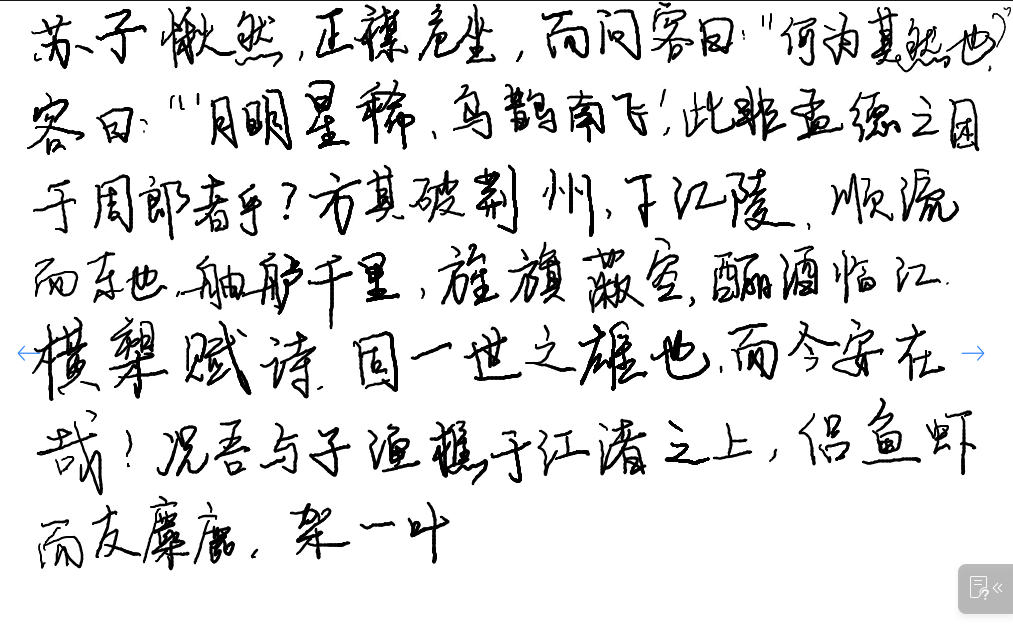 苏子愀然，正襟危坐，而问客曰：“何为其然也？”
客曰：“‘月明星稀，乌鹊南飞’，此非孟德之困
于周郎者乎？方其破荆州，下江陵，顺流
而东也，舳舻千里，旌旗蔽空，酾酒临江，
横槊赋诗，固一世之雄也，而今安在
哉？况吾与子渔樵于江渚之上，侣鱼虾
而友麋鹿，架一叶